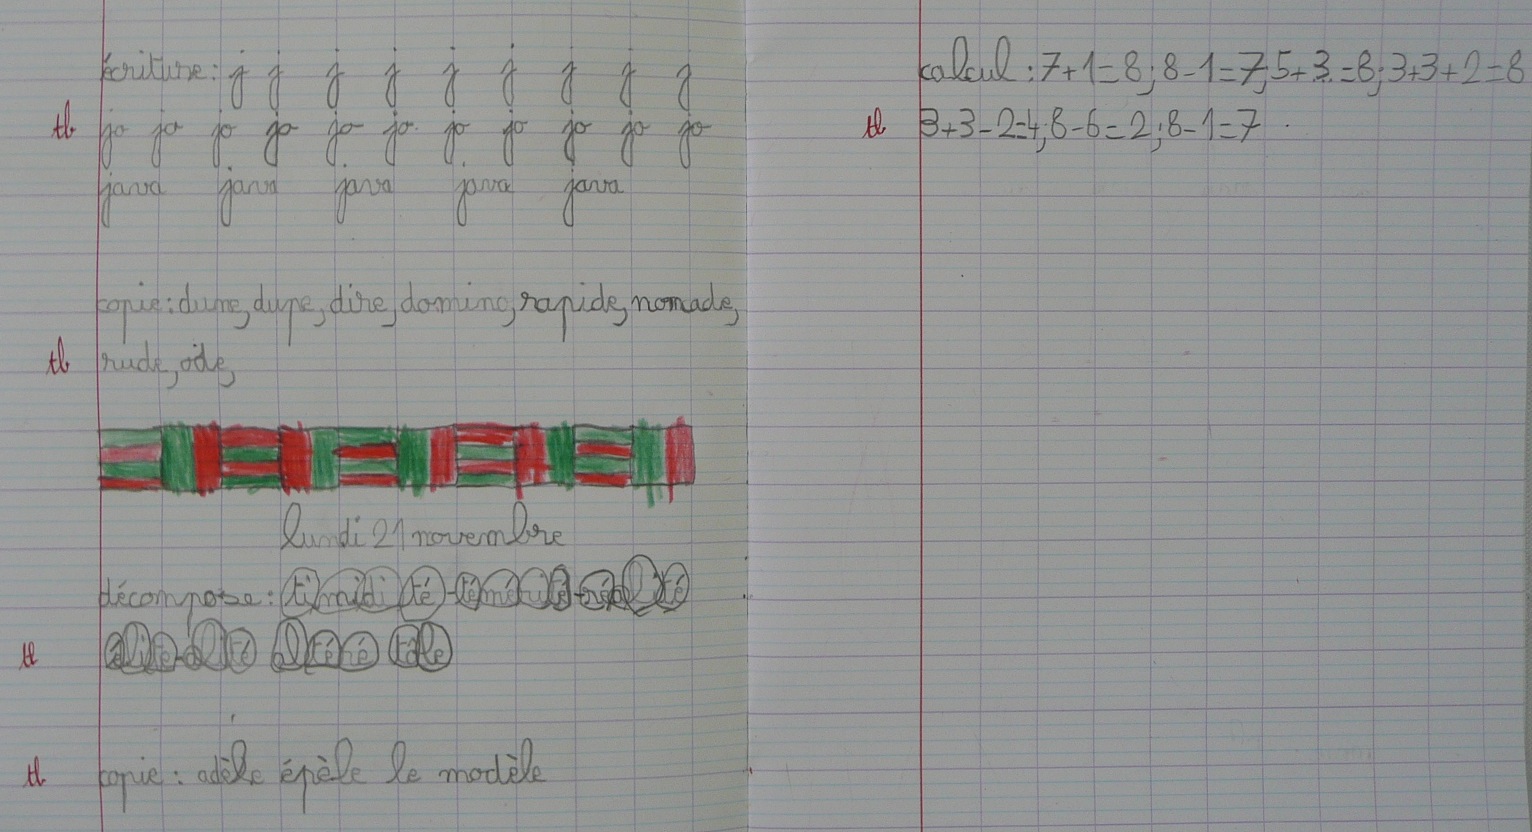 écriture : j j j j j j j j j
tb jo jo jo jo jo jo jo jo jo jo jo
java java java java java
copie : dune, dupe, dire, domino, rapide, nomade,
tb rude, ode,
lundi 21 novembre
décompose : timidité - témérité - réalité
tb élite - alité altéré tôle
tb copie : adèle épèle le modèle
calcul : 7+1=8; 8-1=7; 5+3=8; 3+3+2=8
tb 3+3-2=4; 8-6=2; 8-1=7